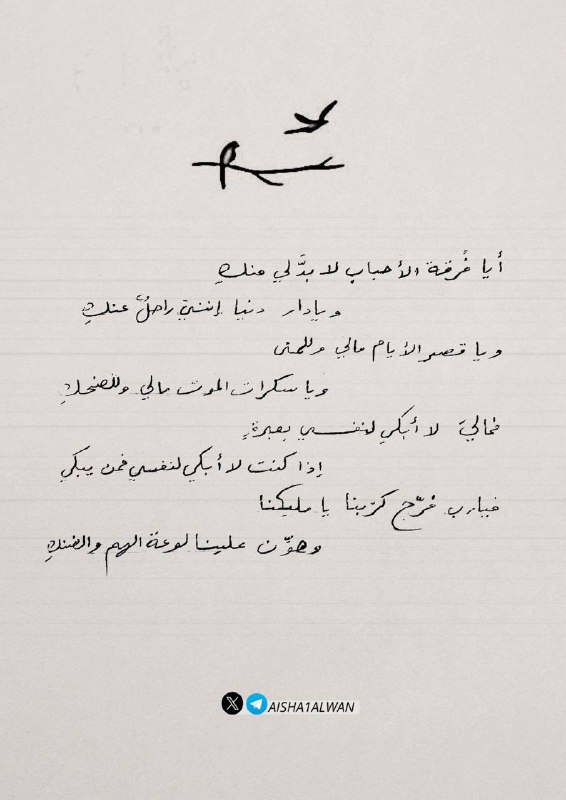 أيا فُرقة الأحباب لا بدَّ لي منكِ
ويا دار دنيا إنني راحلٌ عنكِ
ويا قصر الأيام مالي وللمنى
ويا سكرات الموت مالي وللضحكِ
فماليَ لا أبكي لنفسي بعبرةٍ
إذا كنت لا أبكي لنفسي فمن يبكي
فيارب فرّج كرّبنا يا مليكنا
وهوِّن علينا لوعة الهم والضنكِ
AISHA1ALWAN